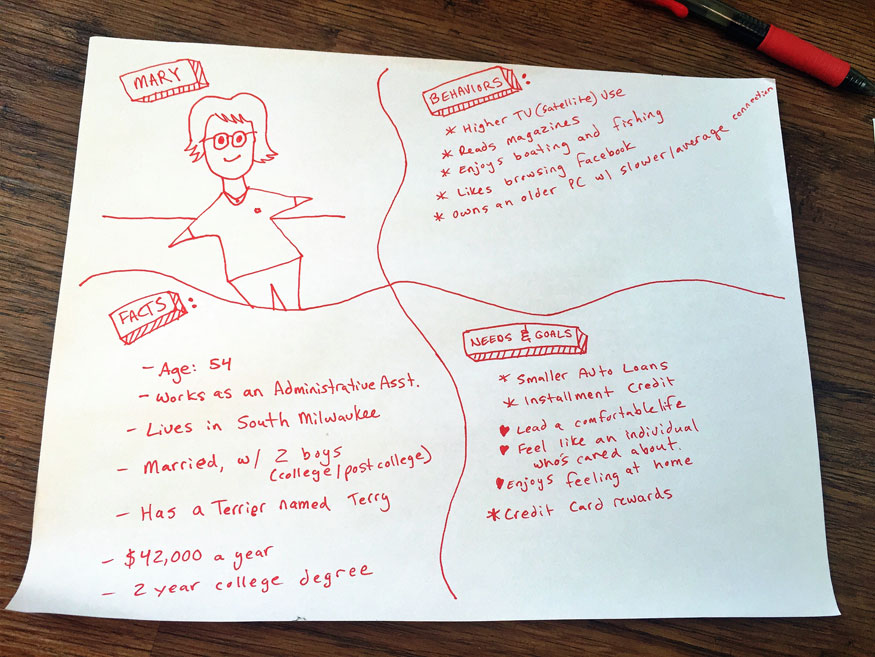 MARY
BEHAVIORS:
* Higher TV (satellite) Use
* Reads magazines
* Enjoys boating and fishing
* Likes browsing Facebook
* Owns an older PC w/ slower/average connection
FACTS:
- Age: 54
- Works as an Administrative Asst.
- Lives in South Milwaukee
- Married, w/ 2 boys
(college/post college)
- Has a Terrier named Terry
- $42,000 a year
- 2 year college degree
NEEDS & GOALS
* Smaller Auto Loans
* Installment Credit
♥ Lead a comfortable life
♥ Feel like an individual
who's cared about.
♥ Enjoys feeling at home
* Credit Card rewards